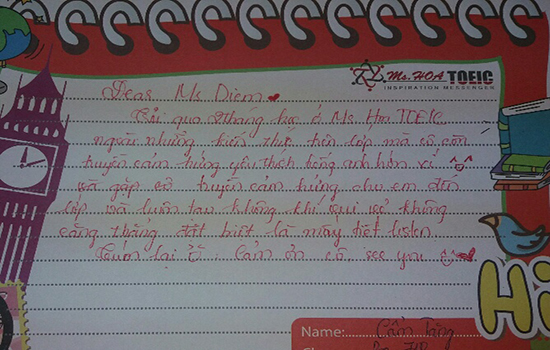 Ms. HOA TOEIC
INSPIRATION MESSENGER
Dear Ms Diem
qua tháng học ở Ms Hoa TOEIC
ngoài những kiến thức trên lớp mà cô còn
truyền cảm hứng yêu thích tiếng anh hơn
gặp cô truyền cảm hứng cho em đến
lớp và luôn tạo không khí vui vẻ không
căng thẳng đặt biết là mấy tiết listen
lại. Cảm ơn cô, see you
Hi
Name: Cẩm